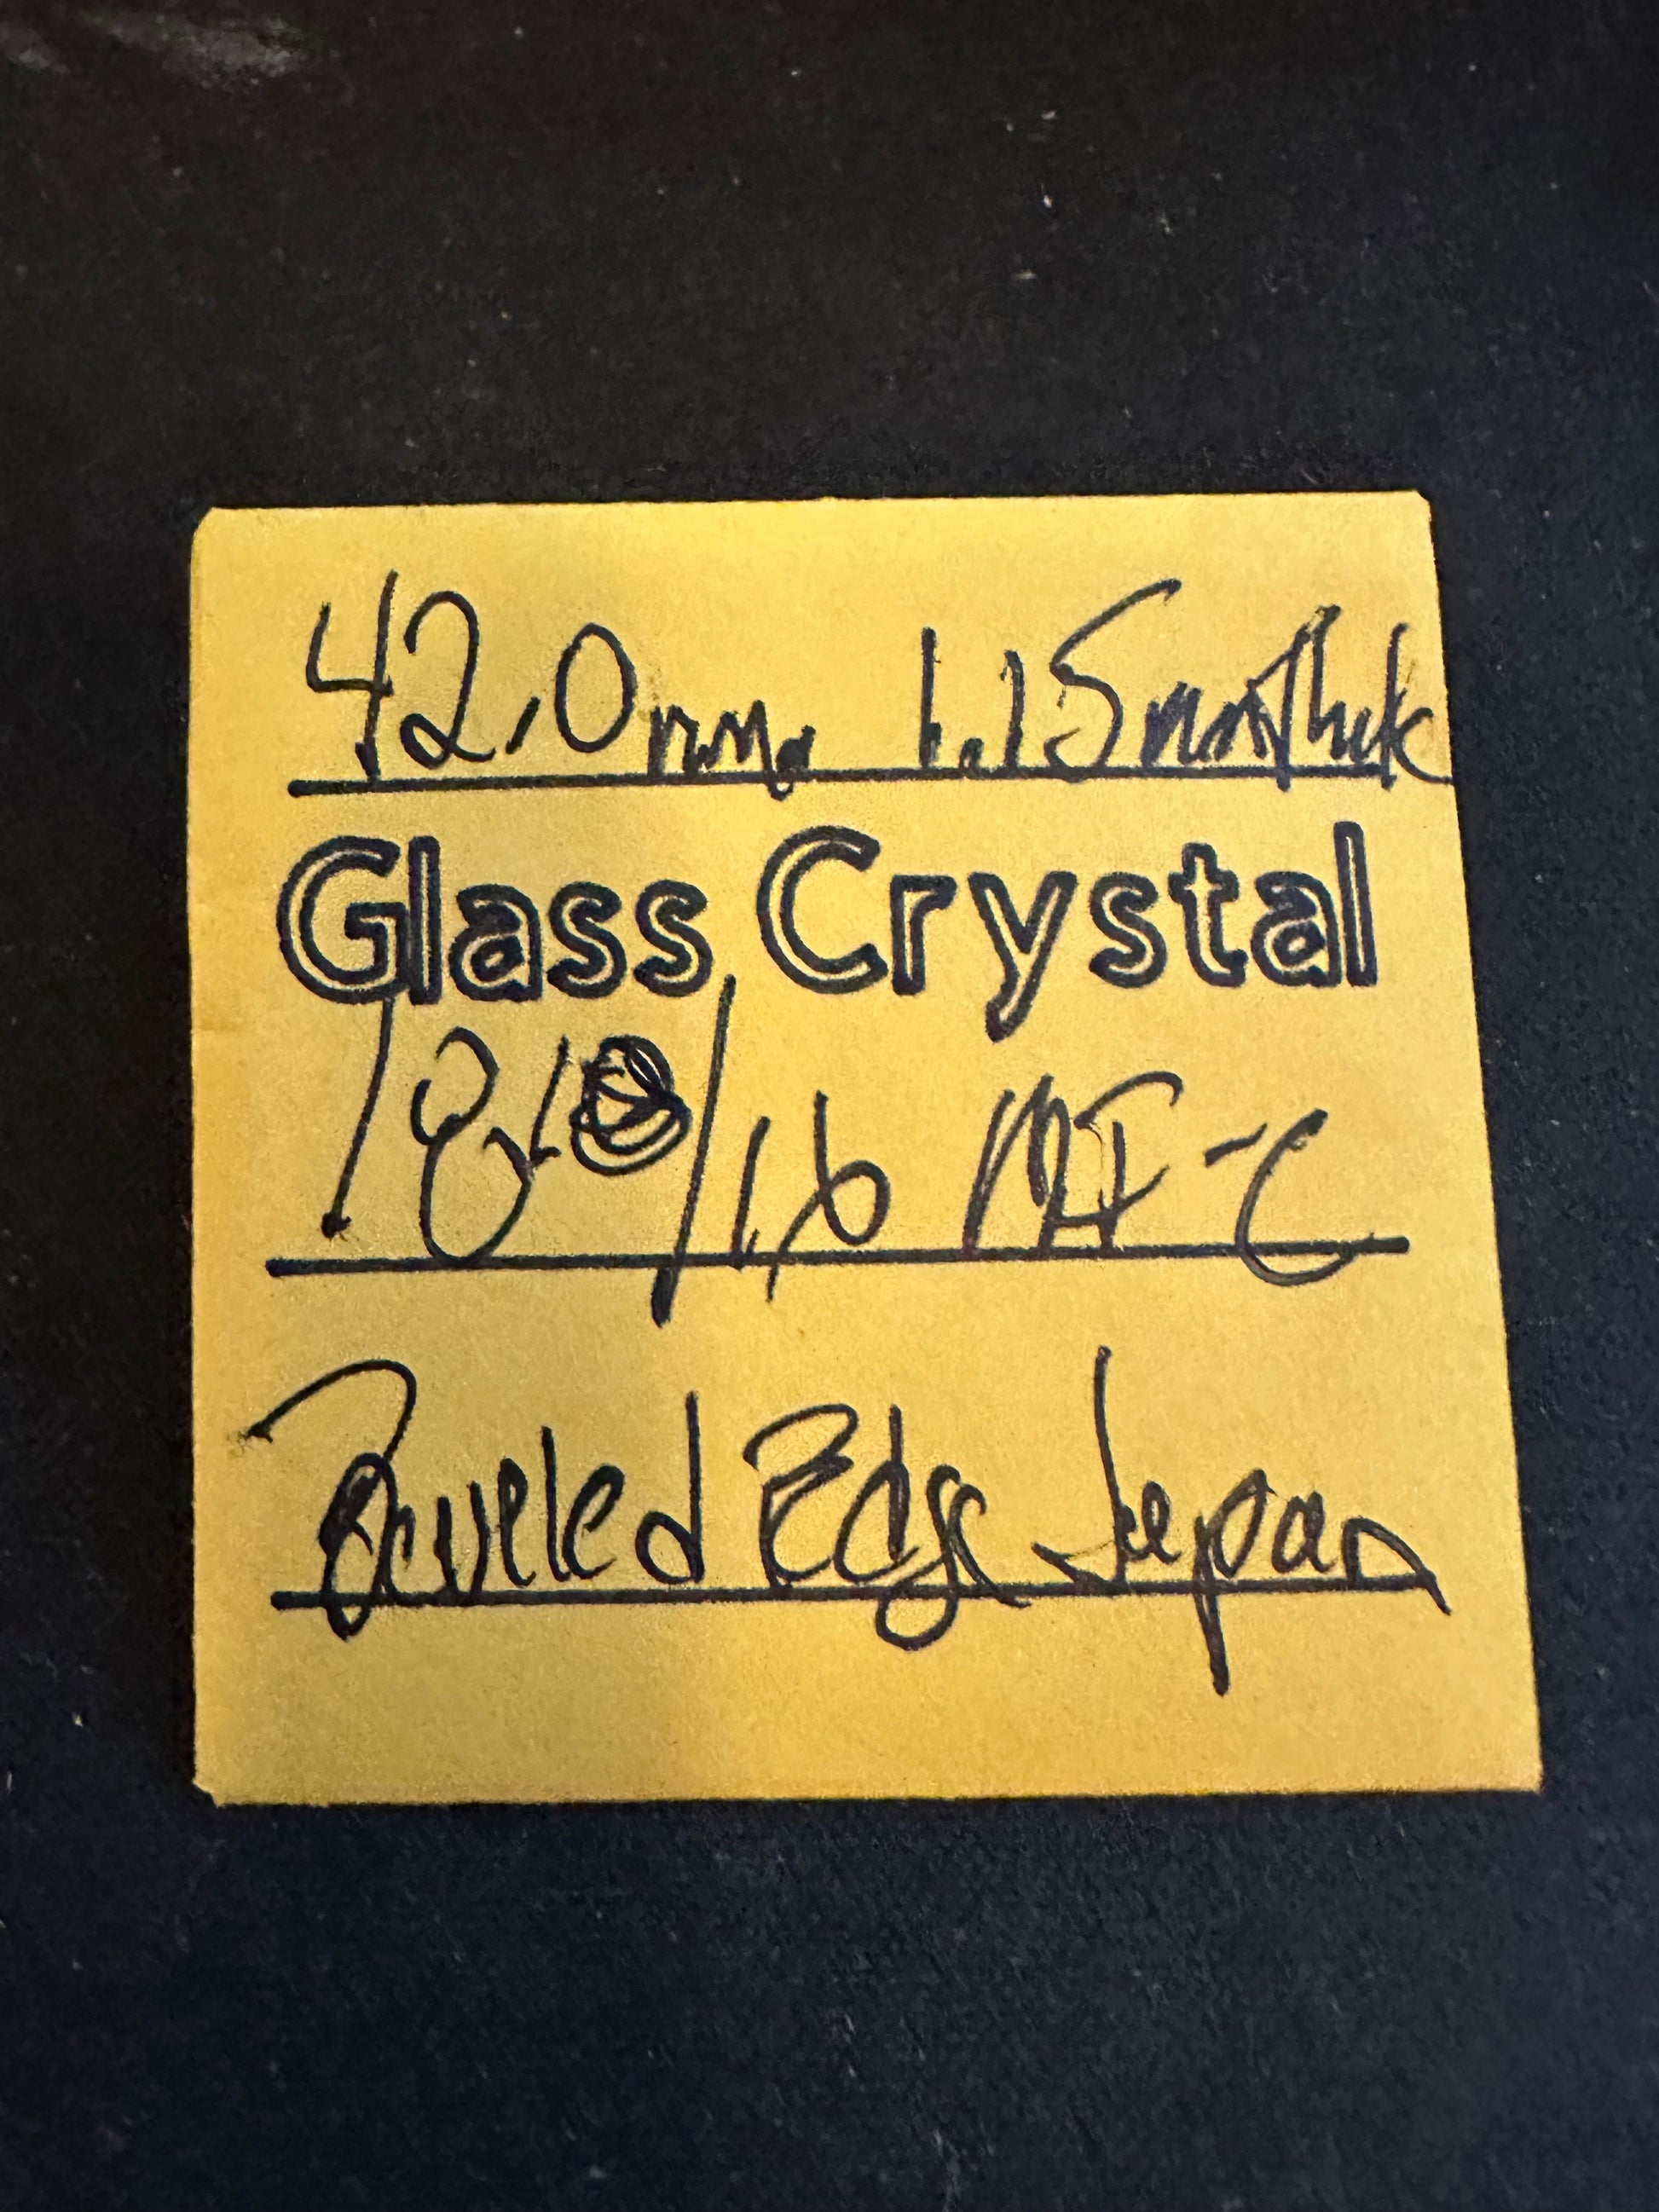 42.0mm. 1.15mm Thick
Glass Crystal
18.1 /1.6 MF-C
Beveled Edge Japan